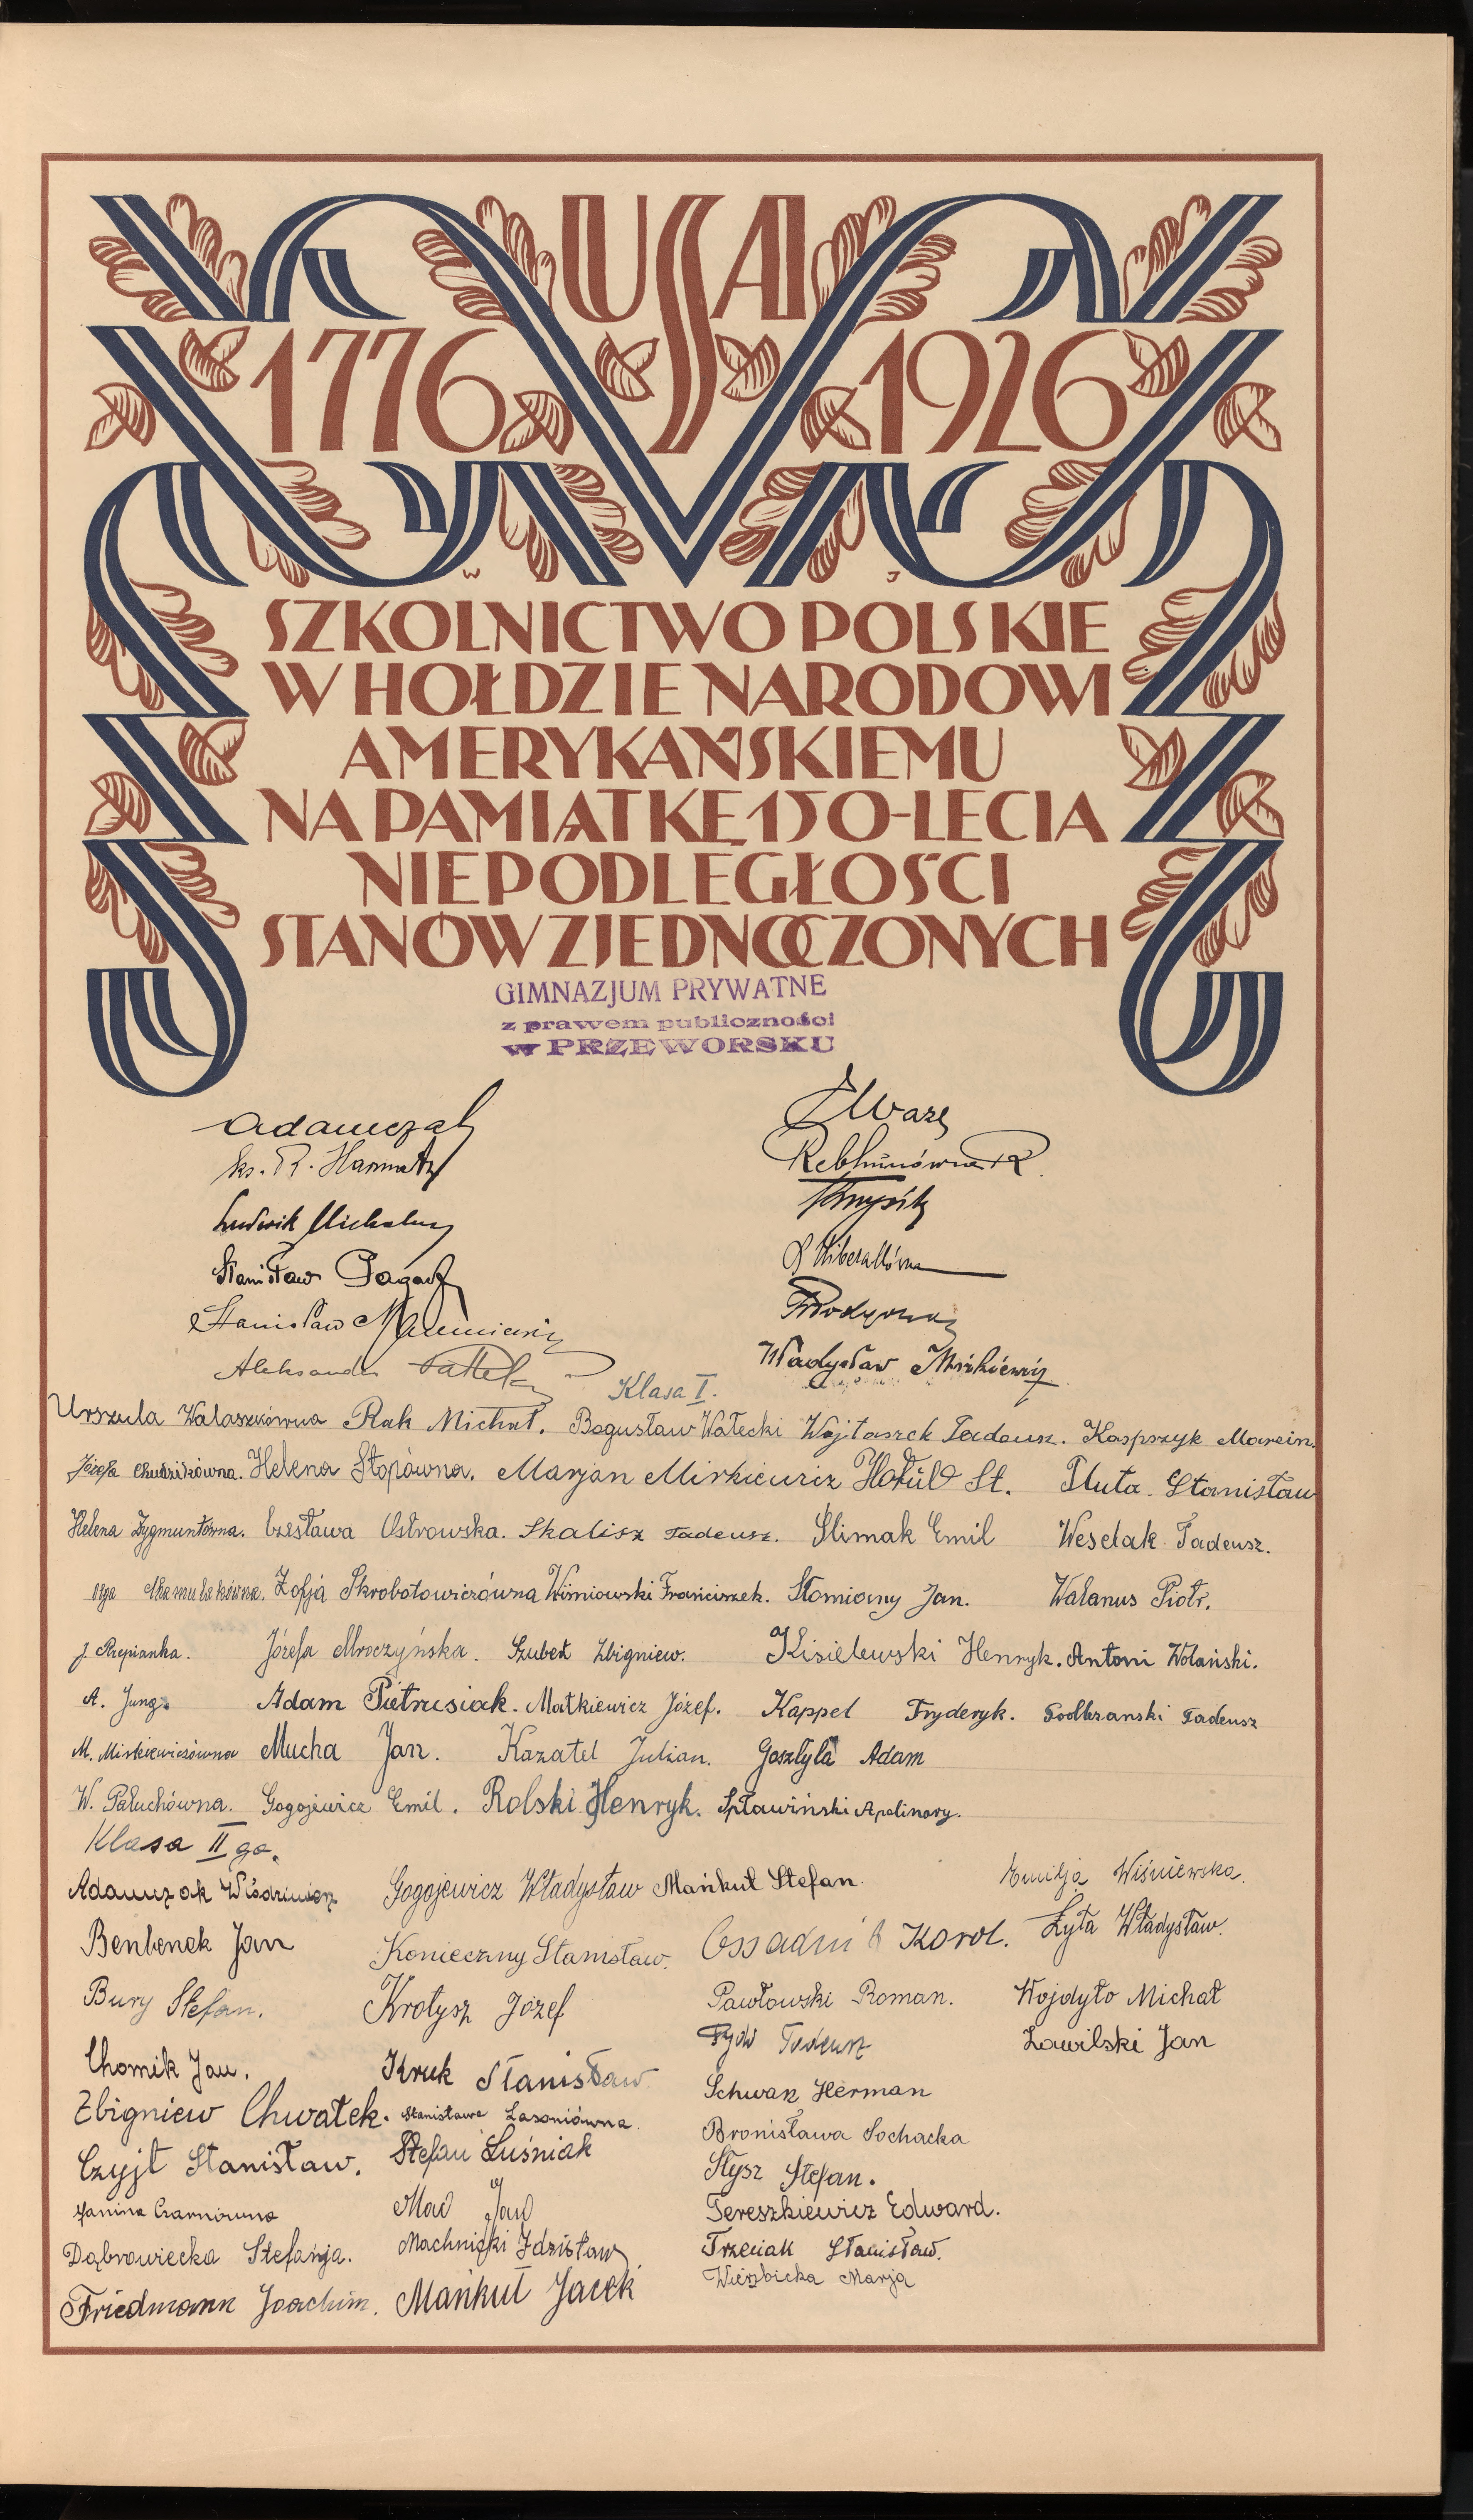 USA
1776 1926
W J
SZKOLNICTWO POLSKIE
W HOŁDZIE NARODOWI
AMERYKAŃSKIEMU
NA PAMIĄTKĘ 150-LECIA
NIEPODLEGŁOŚCI
STANÓW ZJEDNOCZONYCH
GIMNAZJUM PRYWATNE
z prawem publiczności
w PRZEWORSKU
Adamczak
ks. R.
Ludwik
Stanisław
Stanisław
Aleksander
Rebhunówna R.
Władysław Mirkiewicz
Klasa I.
Urszula Walaszkówna Rak Michał. Bogusław Wałecki Wojtaszek Tadeusz. Kasprzyk Marcin.
Józefa Chudzikówna. Helena Stopówna. Marjan Mirkiewicz Hołub St. Pluta Stanisław
Helena Zygmuntówna. Czesława Ostrowska. Skalisz Tadeusz. Ślimak Emil Weselak Tadeusz.
Olga Chamulakówna. Zofja Skrobotowiczówna Wiśniowski Franciszek. Słomiany Jan. Walanus Piotr.
J. Rzepianka. Józefa Mroczyńska. Szubert Zbigniew. Kisielewski Henryk. Antoni Wolański.
A. Jung. Adam Pietrusiak. Matkiewicz Józef. Kappel Fryderyk. Podbrzanski Tadeusz
M. Mirkiewiczówna Mucha Jan. Kazatel Julian. Gosztyła Adam
W. Pałuchówna. Gogojewicz Emil. Rolski Henryk. Spławiński Apolinary.
Klasa II ga.
Adamczak Włodzimierz Gogojewicz Władysław Mańkut Stefan. Emilja Wiśniewska.
Benbenek Jan Konieczny Stanisław. Ossadnik Karol. Żyła Władysław.
Bury Stefan. Krotysz Józef Pawłowski Roman. Wojdyło Michał
Chomik Jan. Kruk Stanisław Tadeusz Zawilski Jan
Zbigniew Chwałek. Stanisława Lasoniówna. Schwarz Herman
Czyjt Stanisław. Stefan Luśniak Bronisława Sochacka
Janina Czarnówna Mac Jan Słysz Stefan.
Dąbrowiecka Stefanja. Machnicki Zdzisław Tereszkiewicz Edward.
Friedmann Joachim. Mańkut Jacek Trzeciak Stanisław.
Wierzbicka Marja